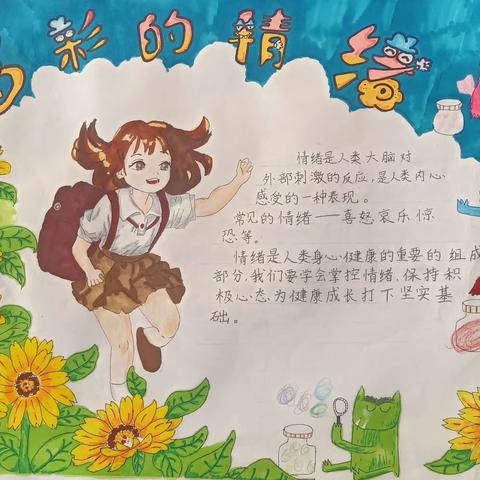 的彩的情绪
情绪是人类大脑对
外部刺激的反应,是人类内心
感受的一种表现。
常见的情绪——喜怒哀乐惊
恐等。
情绪是人类身心健康的重要的组成
部分,我们要学会掌控情绪,保持积
极心态,为健康成长打下坚实基
础。